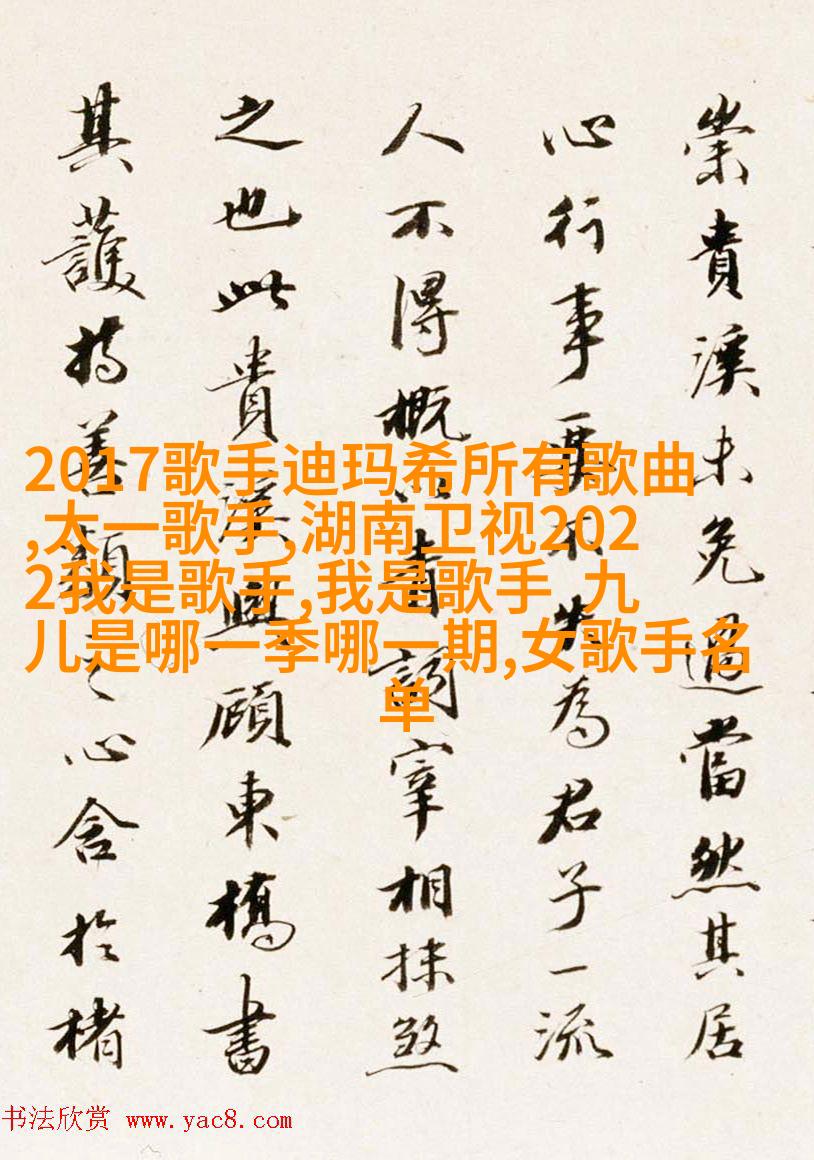 崇貴溪未免過當然其居
心行事要不失為君子一流
人不得概以青詞宰相抹煞
之也此貴溪與顧東橋書
其護持善類之心含於楮
2017歌手迪玛希所有歌曲
,太一歌手,湖南卫视202
2我是歌手,我是歌手 九
儿是哪一季哪一期,女歌手名
单
书法欣赏 www.yac8.com